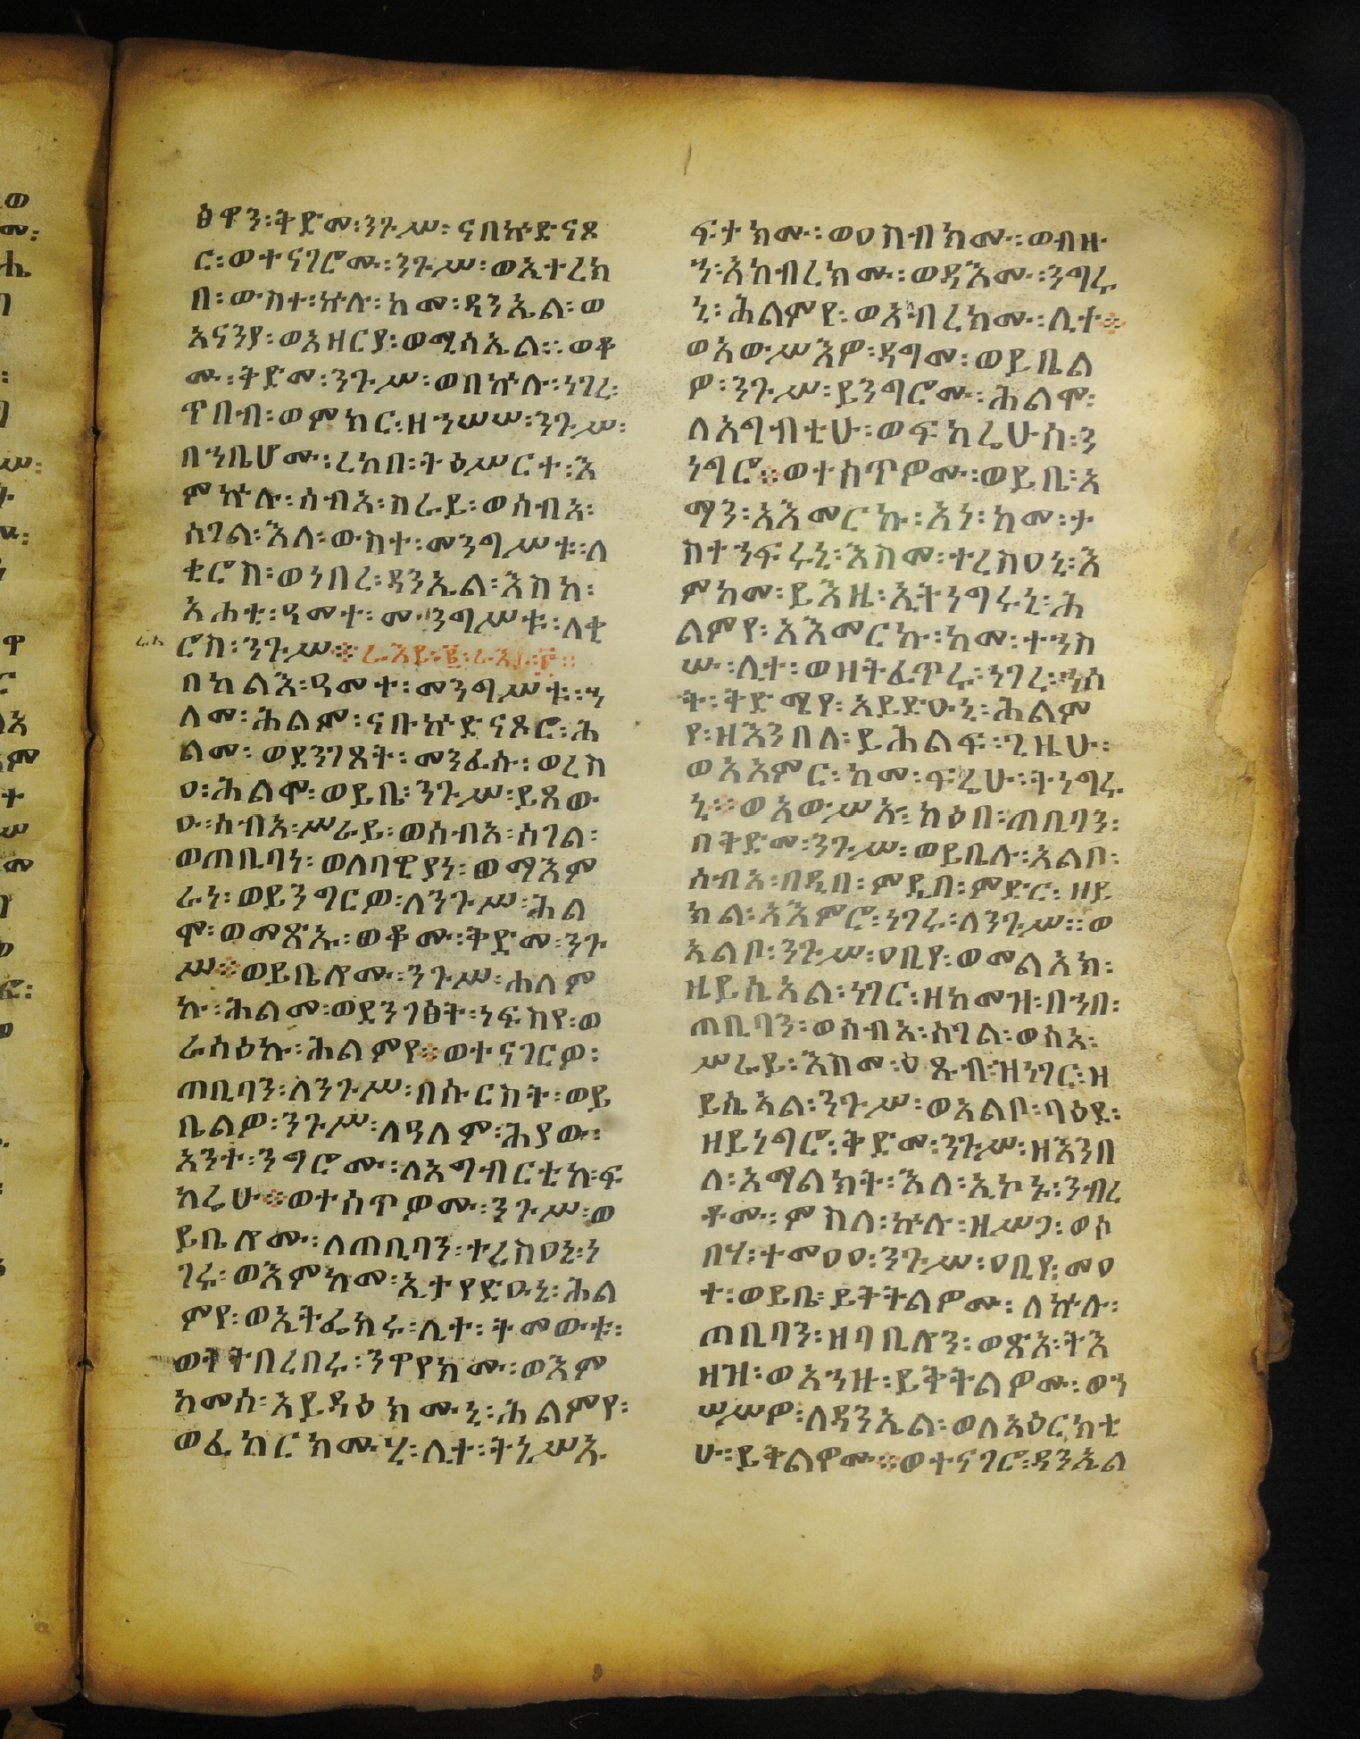 ፅዋን፡ቅድመ፡ንጉሥ፡ናቡኵድናጾ
ር፡ወተናገሮሙ፡ንጉሥ፡ወኢተረክ
በ፡ውስተ፡ኵሉ፡ከመ፡ዳንኤል፡ወ
አናንያ፡ወአዘርያ፡ወሚሳኤል።ወቆ
ሙ፡ቅድመ፡ንጉሥ፡ወበኵሉ፡ነገረ፡
ጥበብ፡ወምክር፡ዘኀሠሠ፡ንጉሥ፡
በኀቤሆሙ፡ረከበ፡ትዕሥርተ፡እ
ምኵሉ፡ሰብአ፡ሰራይ፡ወሰብአ፡
ሰገል፡እለ፡ውስተ፡መንግሥቱ፡ለ
ቂሮስ፡ወነበረ፡ዳንኤል፡እስከ፡
አሐቲ፡ዓመተ፡መንግሥቱ፡ለቂ
ሮስ፡ንጉሥ፨ራእይ፡፪፡
በካልእ፡ዓመተ፡መንግሥቱ፡ኀ
ለመ፡ሕልም፡ናቡኵድናጾሮ፡ሕ
ልመ፡ወደንገጸት፡መንፈሱ፡ወረስ
ዐ፡ሕልሞ፡ወይቤ፡ንጉሥ፡ይጸው
ዑ፡ሰብአ፡ሥራይ፡ወሰብአ፡ሰገል፡
ወጠቢባነ፡ወለባዊያነ፡ወማእም
ራነ፡ወይንግርዎ፡ለንጉሥ፡ሕል
ሞ፡ወመጽኡ፡ወቆሙ፡ቅድመ፡ንጉ
ሥ፨ወይቤሎሙ፡ንጉሥ፡ሐለም
ኩ፡ሕልመ፡ወደንገፅት፡ነፍስየ፡ወ
ራሳዕኩ፡ሕልምየ፨ወተናገርዎ፡
ጠቢባን፡ለንጉሥ፡በሱርስት፡ወይ
ቤልዎ፡ንጉሥ፡ለዓለም፡ሕያው፡
አንተ፡ንግሮሙ፡ለአግብርቲከ፡ፍ
ካሬሁ፨ወተሰጥዎሙ፡ንጉሥ፡ወ
ይቤሎሙ፡ለጠቢባን፡ተረስዐኒ፡ነ
ገሩ፡ወእምከመ፡ኢታየድዑኒ፡ሕል
ምየ፡ወኢትፌክሩ፡ሊተ፡ትመውቱ፡
ወትትበረበሩ፡ንዋየክሙ፡ወእም
ከመሰ፡አይዳዕክሙኒ፡ሕልምየ፡
ወፈከርክሙሂ፡ሊተ፡ትነሥኡ
ፍታክሙ፡ወዐስብክሙ፡ወብዙ
ኀ፡አከብረክሙ፡ወዳእሙ፡ንግሩ
ኒ፡ሕልምየ፡ወአብረክሙ፡ሊተ፨
ወአውሥእዎ፡ዳግመ፡ወይቤል
ዎ፡ንጉሥ፡ይንግሮሙ፡ሕልሞ፡
ለአግብቲሁ፡ወፍካሬሁሰ፡ን
ነግሮ፨ወተሰጥዎሙ፡ወይቤ፡አ
ማን፡አእመርኩ፡አነ፡ከመ፡ታ
ስተኀፍሩኒ፡እስመ፡ተረስዐኒ፡እ
ምከመ፡ይእዜ፡ኢትነግሩኒ፡ሕ
ልምየ፡አእመርኩ፡ከመ፡ተኀስ
ሡ፡ሊተ፡ወዘትፈጥሩ፡ነገረ፡ኀሰ
ት፡ቅድሜየ፡አይድዑኒ፡ሕልም
የ፡ዘእንበለ፡ይሕልፍ፡ጊዜሁ፡
ወአአምር፡ከመ፡ፍሬሁ፡ትነግሩ
ኒ፨ወአውሥአ፡ከዕበ፡ጠቢባን፡
በቅድመ፡ንጉሥ፡ወይቤሉ፡አልቦ፡
ሰብአ፡በዲበ፡ምዲበ፡ምድር፡ዘይ
ክል፡አእምሮ፡ነገሩ፡ለንጉሥ።ወ
ኢልቦ፡ንጉሥ፡ዐቢየ፡ወመልአክ፡
ዜይሴአል፡ነገር፡ዘከመዝ፡በኀበ፡
ጠቢባን፡ወሰብአ፡ሰገል፡ወሰአ፡
ሥራይ፡እስመ፡ዕጹብ፡ዝነገር፡ዘ
ይሴአል፡ንጉሥ፡ወአልቦ፡ባዕደ፡
ዘይነግሮ፡ቅድመ፡ንጉሥ፡ዘእንበ
ለ፡አማልክት፡እለ፡ኢኮኑ፡ንብረ
ቶሙ፡ምስለ፡ኵሉ፡ዘሥጋ፡ወሶ
በሃ፡ተመዐዐ፡ንጉሥ፡ዐቢየ፡መዐ
ተ፡ወይቤ፡ይቅትልዎሙ፡ለኵሉ፡
ጠቢባን፡ዘባቢሎን፡ወጽአ፡ትእ
ዘዝ፡ወአኀዙ፡ይቅትልዎሙ፡ወኀ
ሠሥዎ፡ለዳንኤል፡ወለአዕርክቲ
ሁ፡ይቅልዋሙ፨ወተናገሮ፡ዳንኤል